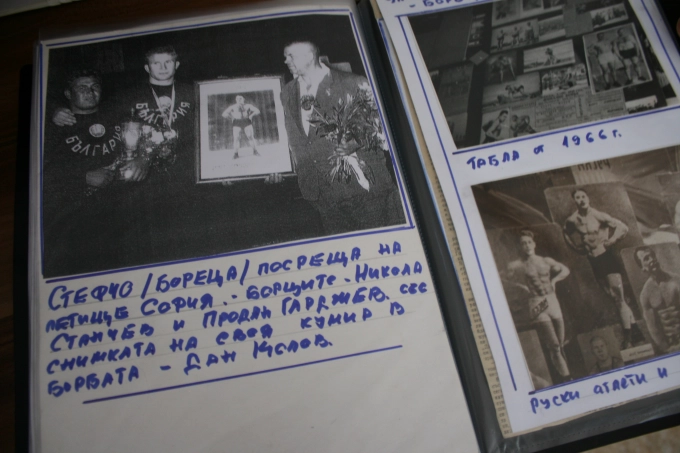 БЪЛГАРИЯ
БЪЛГАРИЯ
СТЕФЧО /БОРЕЦА/ ПОСРЕЩА НА
ЛЕТИЩЕ СОФИЯ.- БОРЦИТЕ - НИКОЛА
СТАНЧЕВ И ПРОДАН ГАРДЖЕВ. СЪС
СНИМКАТА НА СВОЯ КУМИР В
БОРБАТА - ДАН КОЛОВ.
ТАБЛА ОТ 1966 г.
РУСКИ АТЛЕТИ И